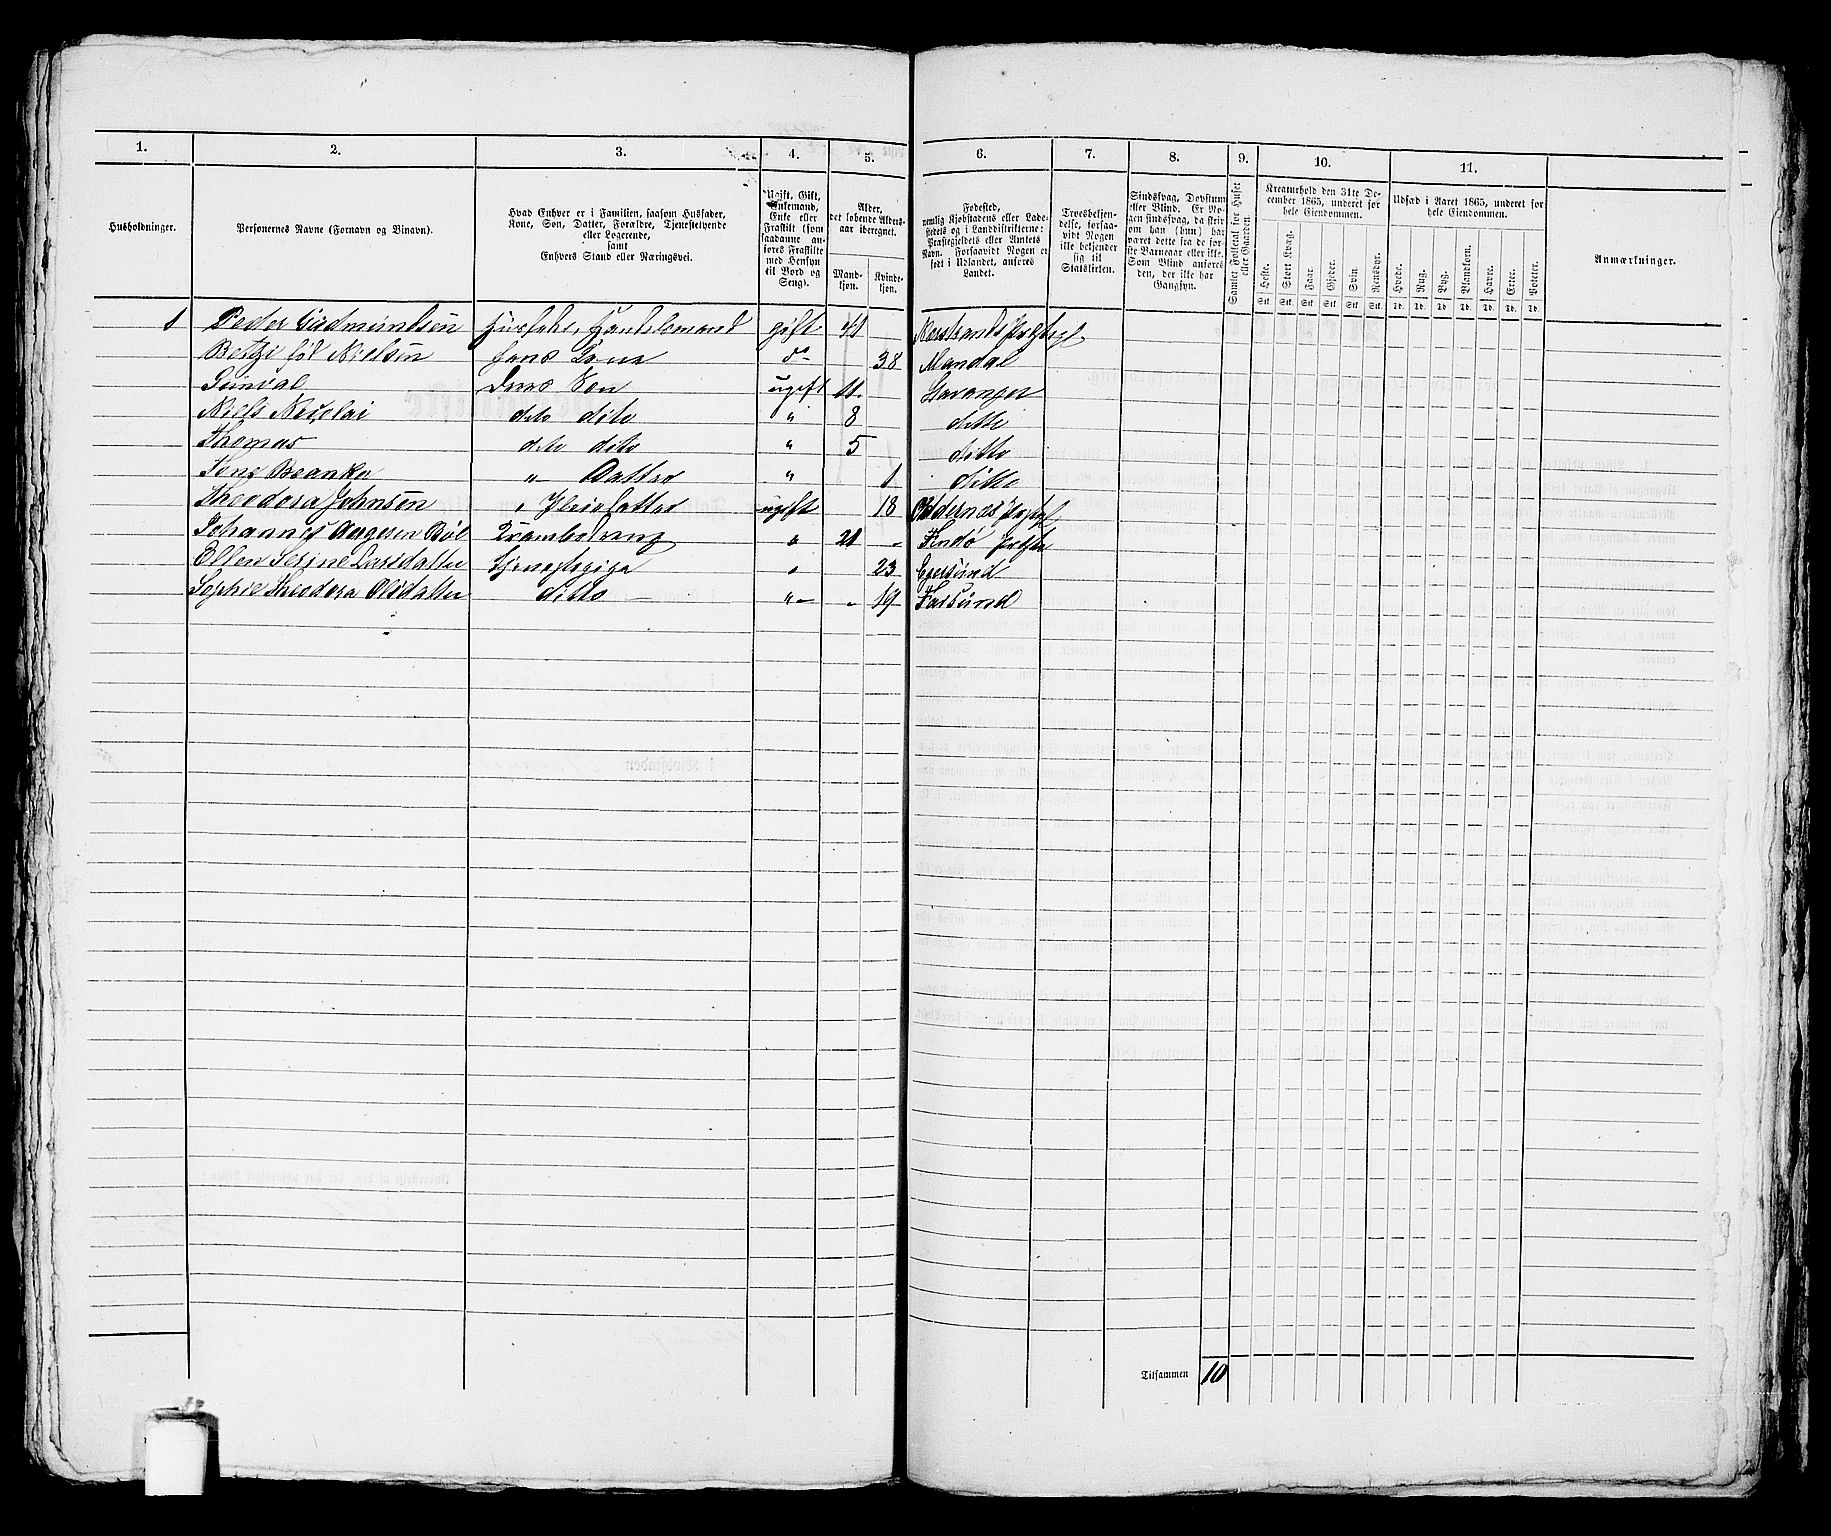 1. 2. 3. 4. 5. 6. 7. 8. 9. 10. 11.
Husholdninger.
Personernes Navne (Fornavn og Binavn).
Hvad Enhver er i Familien, saasom Husfader,
Kone, Søn, Datter, Forældre, Tjenestetyende
eller Logerende,
samt
Enhvers Stand eller Næringsvei.
Ugift, Gift,
Enkemand,
Enke eller
Fraskilt (som
saadanne an-
føres Fraskilte
med Hensyn
til Bord og
Seng).
Alder,
det løbende Alders-
aar iberegnet.
Mand-
kjøn.
Kvinde-
kjøn.
Fødested,
nemlig Kjøbstadens eller Lade-
stedets og i Landdistrikterne:
Præstegjeldets eller Amtets
Navn. Forsaavidt Nogen er
født i Udlandet, anføres
Landet.
Troesbekjen-
delse, forsaa-
vidt Nogen
ikke bekjender
sig til
Statskirken.
Sindssvag, Døvstum
eller Blind. Er No-
gen sindssvag, da skri-
ves om han (hun) har
været dette fra de før-
ste Barneaar eller ikke.
Som Blind anføres
den, der ikke har
Gangsyn.
Samlet Folketal for Huset
eller Gaarden
Kreaturhold den 31te De-
cember 1865, underet for
hele Eiendommen.
Heste. Stort Kvæg. Faar. Gjeder. Svin. Rensdyr.
Stk. Stk. Stk. Stk. Stk. Stk.
Udsæd i Aaret 1865, underet for
hele Eiendommen.
Hvede. Rug. Byg. Blandkorn. Havre. Erter. Poteter.
Td. Td. Td. Td. Td. Td. Td.
Anmærkninger.
1 Peder Gudmundsen Husfader, Handelsmand gift 41 Nærstrands
Nielsen hans Kone do 38 Mandal
Deres Søn ugift 11. Stavanger
Niels Nicolai deto dito " 8 ditto
Thomas deto dito " 5 ditto
" Datter " 1 ditto
Theodora Johnsen " Pleiedatter ugift 18
Johannes Aagesen Krambodreng " 21 - Findø
Ellen Serine Larsdatter Tjenestepige " 23 Egersund
Sophie Theodora Olsdatter ditto - " - - 19 Farsund
Tilsammen 10